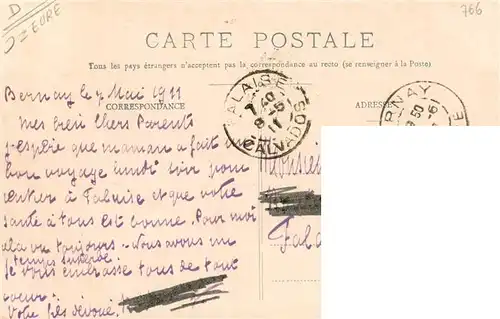 D
D = EURE
766
CARTE POSTALE
Tous les pays étrangers n'acceptent pas la correspondance au recto (se renseigner à la Poste)
CORRESPONDANCE
ADRESSE
FALAISE
CALVADOS
BERNAY
Bernay le 7 Mai 1911
Mes bien Chers Parents
J'espère que maman a fait un
bon voyage lundi soir pour
rentrer à Falaise et que votre
santé à tous est bonne. Pour moi
cela va toujours. Nous avons un
temps superbe.
Je vous embrasse tous de tout
coeur.
Votre fils dévoué.
Monsieur
Fala